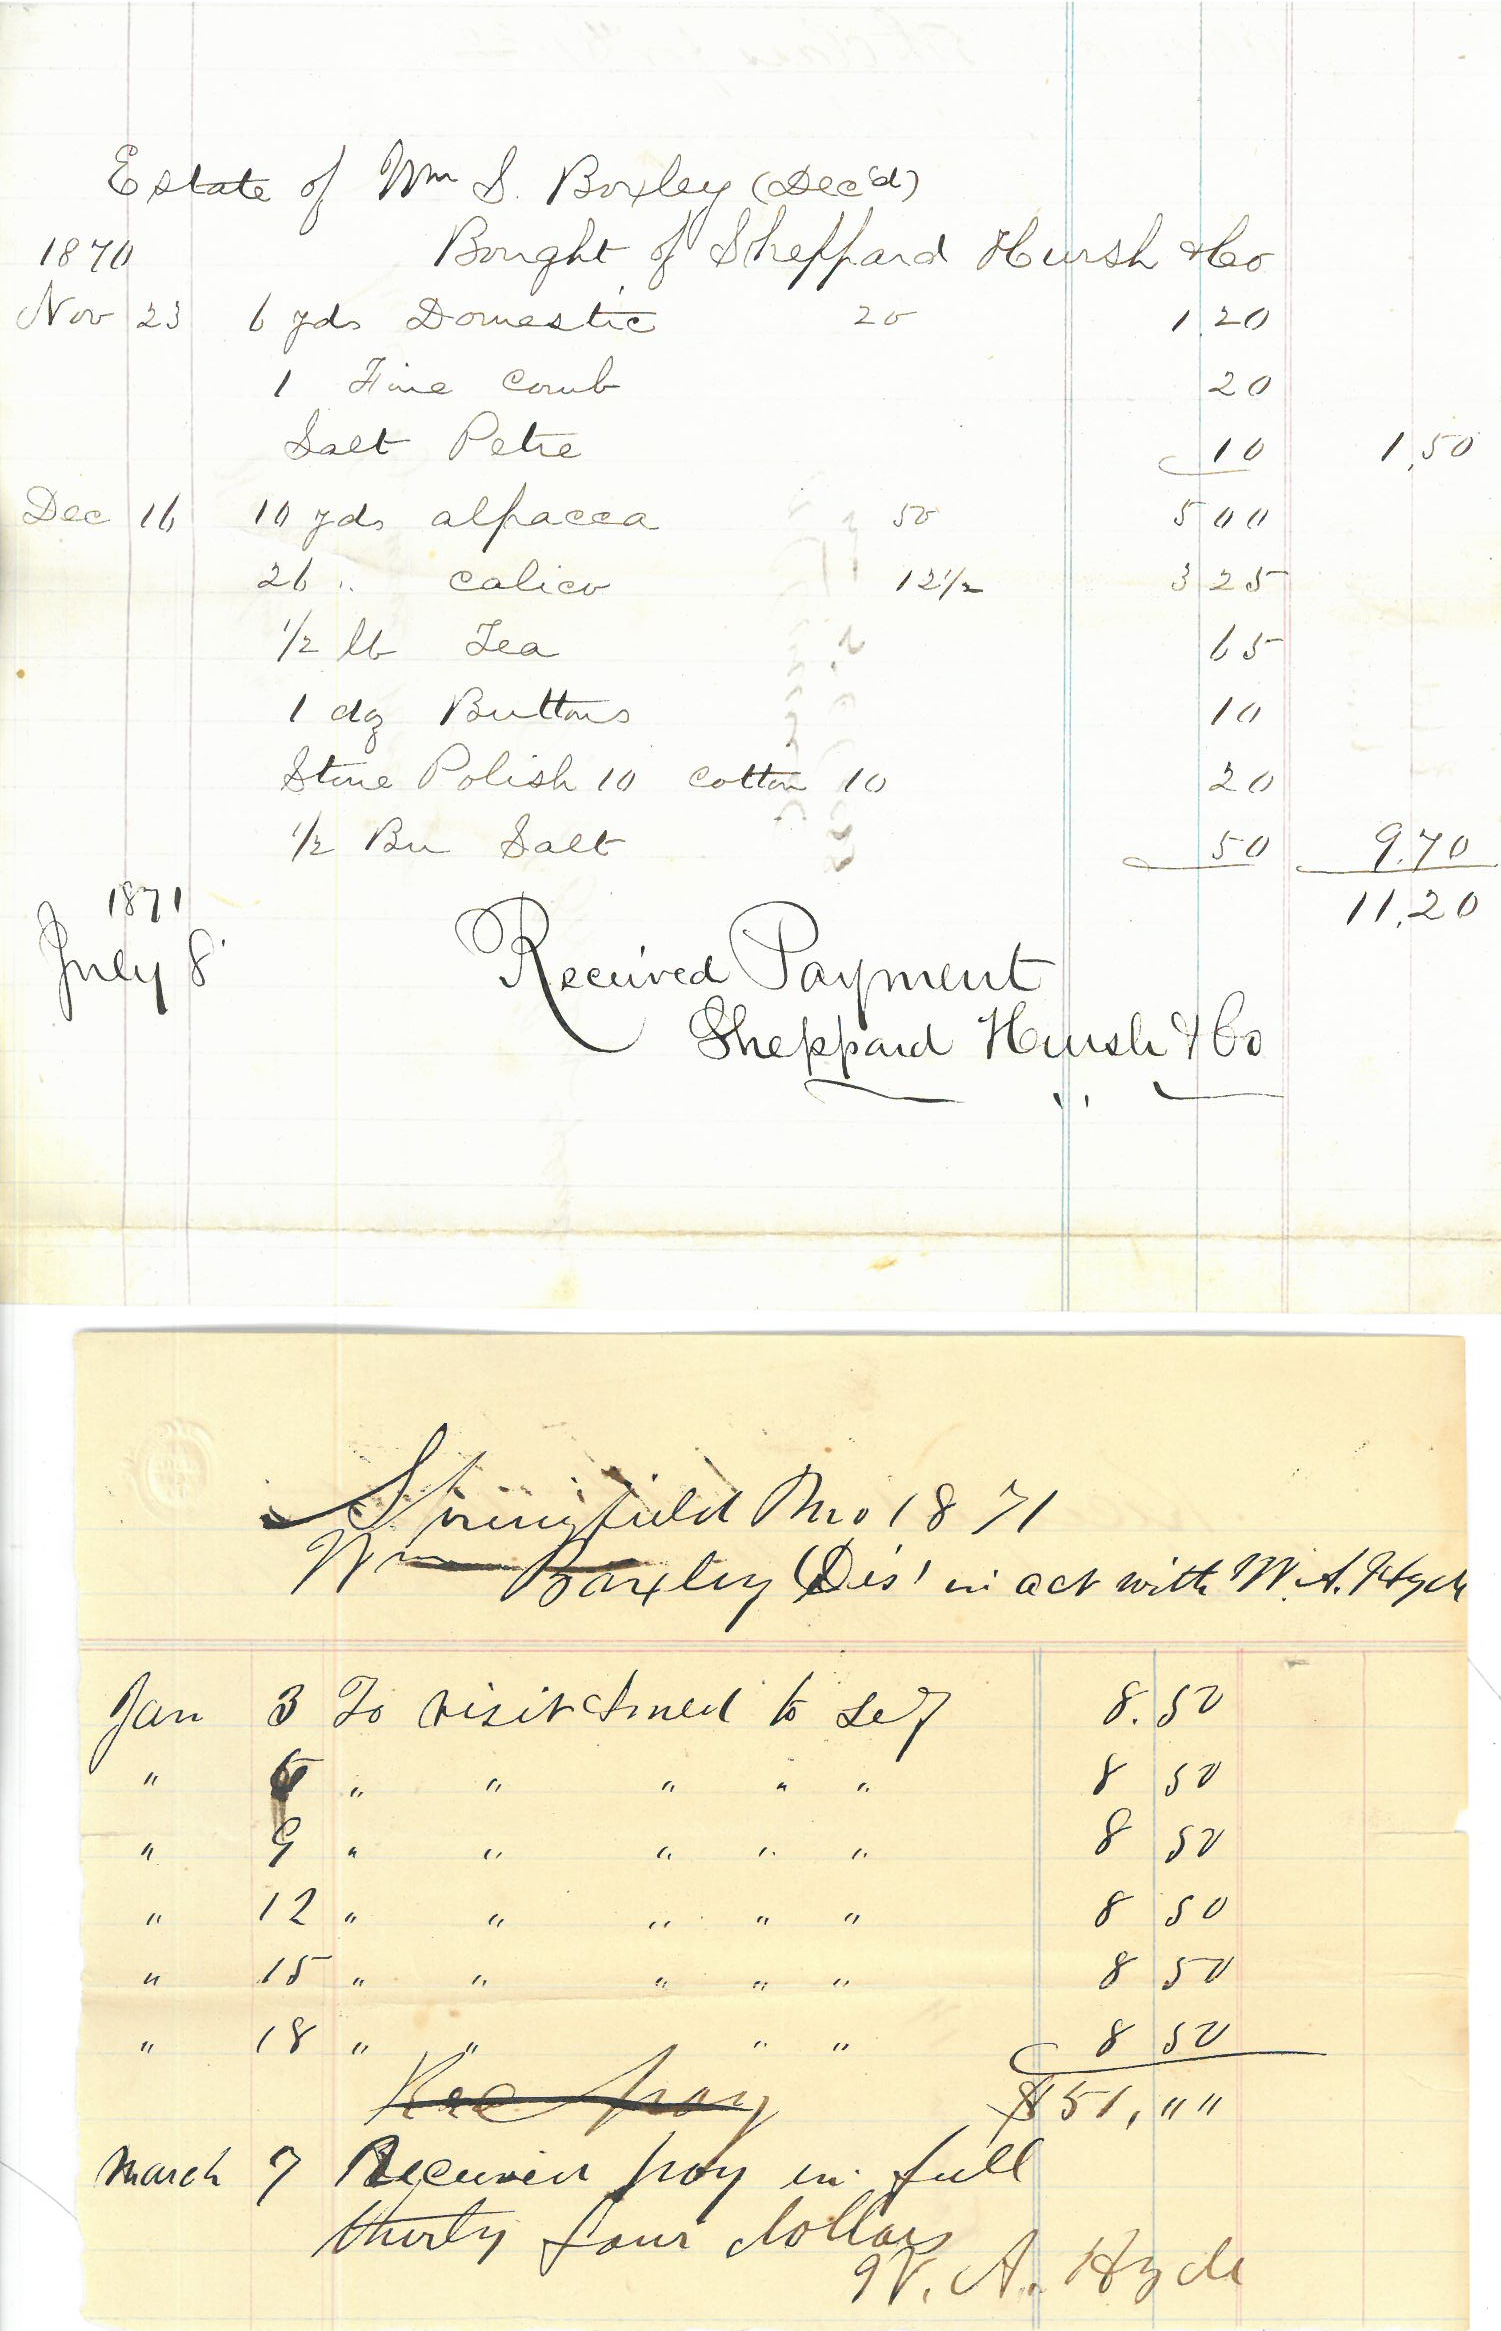 Estate of Wm S. Boxley (Dec'd)
1870 Bought of Sheppard Hursh & Co
Nov 23 6 yds Domestic 20 1 20
1 Fine Comb 20
Salt Petre 10 1.50
Dec 16 10 yds alpacca 50 5 00
26 " calico 12 1/2 3 25
1/2 lb Tea 65
1 dz Buttons 10
Stove Polish 10 cotton 10 20
1/2 Bu Salt 50 9.70
11.20
1871
July 8 Received Payment
Sheppard Hursh & Co
Springfield Mo 1871
Wm Boxley (Des' in act with W. A. Hyde
Jan 3 To visit & med to self 8.50
" 6 " " " " " 8 50
" 9 " " " " " 8 50
" 12 " " " " " 8 50
" 15 " " " " " 8 50
" 18 " " " " 8 50
Rec pay $51, " "
March 7 Received pay in full
thirty four dollars
W. A. Hyde